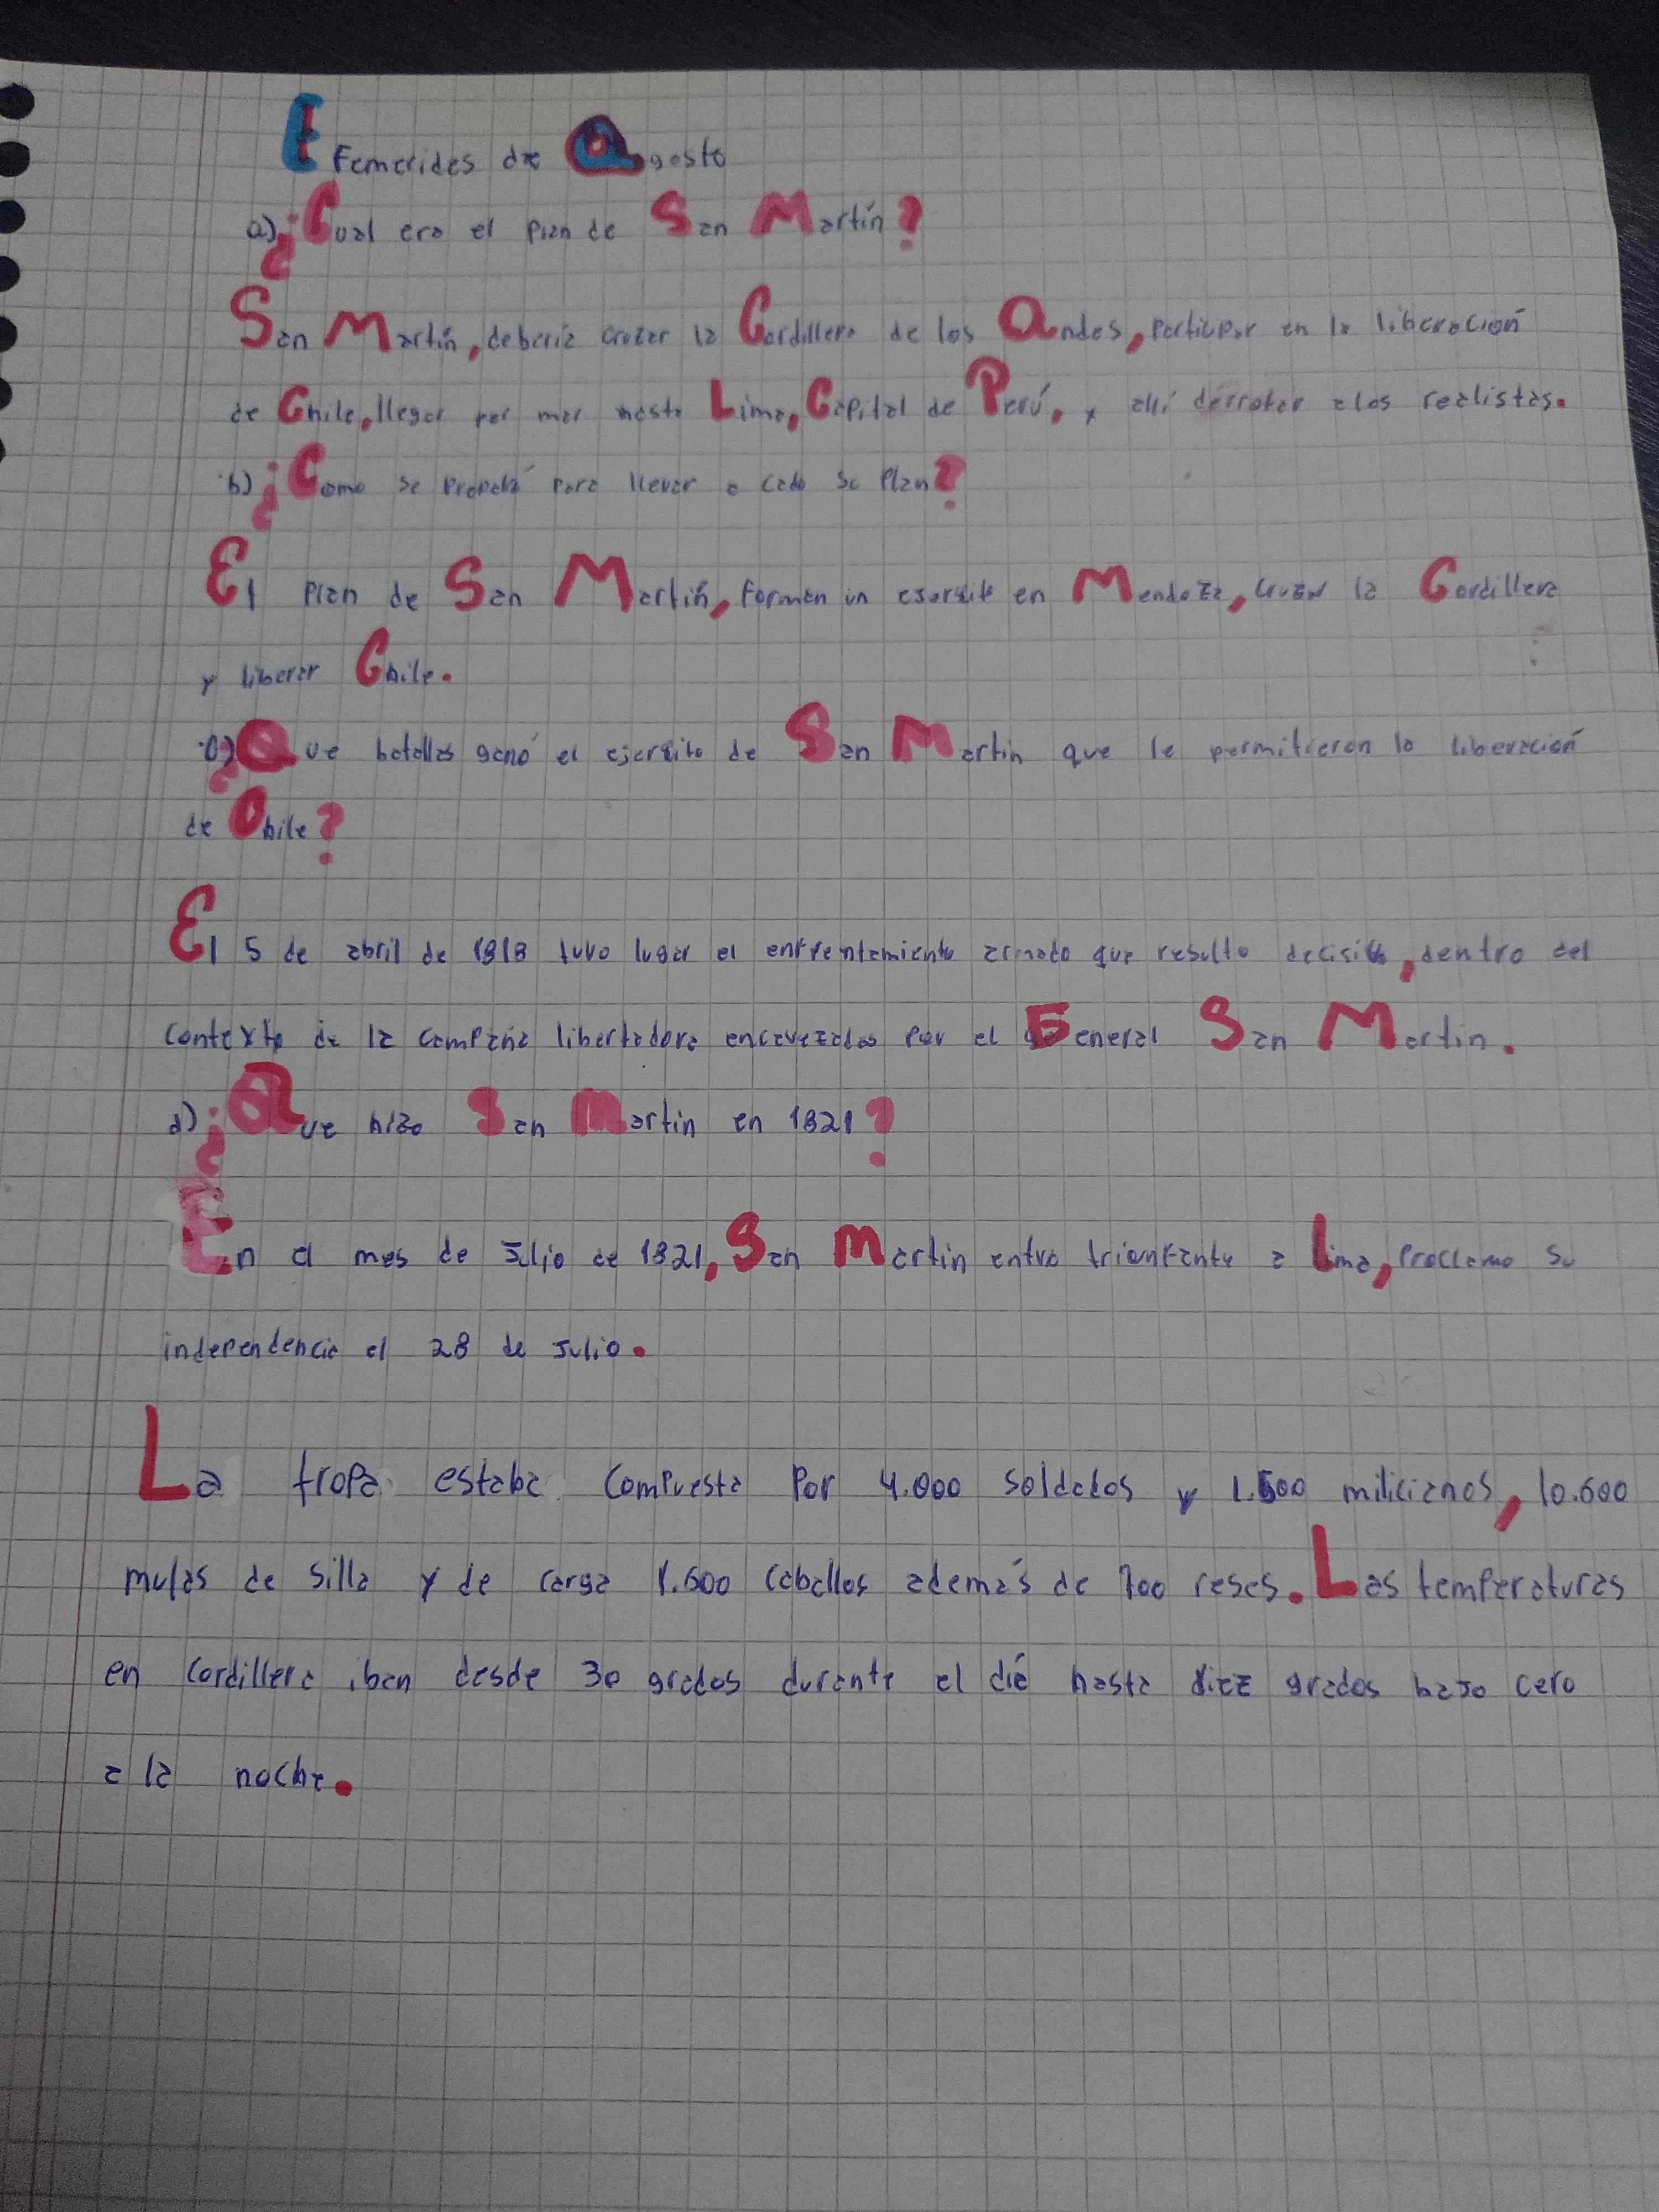 Efemerides de Agosto
a) ¿Cual era el plan de San Martín?
San Martín, debería cruzar la Cordillera de los Andes, participar en la liberación
de Chile, llegar por mar hasta Lima, Capital de Perú, y allí derrotar a los realistas.
b) ¿Como se preparó para llevar a cabo su Plan?
El Plan de San Martín, forman un esersito en Mendoza, cruzar la Cordillera
y liberar Chile.
c) ¿Que batallas ganó el ejersito de San Martin que le permitieron la liberación
de Chile?
El 5 de abril de 1818 tuvo lugar el enfrentamiento armado que resulto decisivo, dentro del
contexto de la campaña libertadora encavezadas por el General San Martin.
d) ¿Que hizo San Martin en 1821?
En el mes de Julio de 1821, San Martin entro trionfante a Lima, Proclamo su
independencia el 28 de Julio.
La tropa estaba compuesta Por 4.000 soldados y 1.500 milicianos, 10.600
mulas de silla y de carga 1.600 caballos además de 700 reses. Las temperaturas
en cordillera iban desde 30 grados durante el día hasta diez grados bajo cero
a la noche.